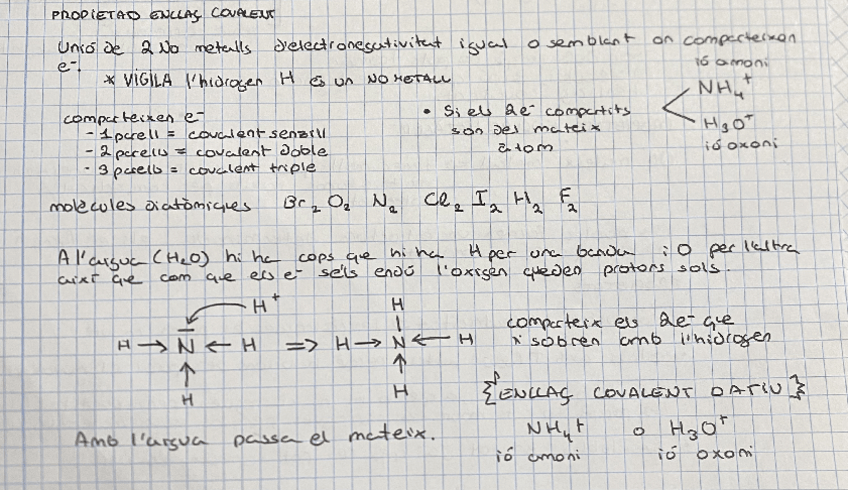 PROPIETAD ENLLAÇ COVALENT
Unió de 2 No metalls d'electronegativitat igual o semblant on comparteixen
e⁻!
* VIGILA l'hidrogen H és un NO METALL
ió amoni
NH₄⁺
H₃O⁺
ió oxoni
comparteixen e⁻
- 1 parell = covalent senzill
- 2 parells = covalent doble
- 3 parells = covalent triple
• Si els 2e⁻ compartits
son del mateix
àtom
molècules diatòmiques Br₂ O₂ N₂ Cl₂ I₂ H₂ F₂
A l'aigua (H₂O) hi ha cops que hi ha H per una banda i O per l'altra
així que com que els e⁻ se'ls endú l'oxigen queden protons sols.
H⁺
H → N ← H ⇒ H → N ← H
H
H
H
comparteix els 2e⁻ que
li sobren amb l'hidrogen
{ENLLAÇ COVALENT DATIU}
Amb l'aigua passa el mateix.
NH₄⁺ o H₃O⁺
ió amoni ió oxoni